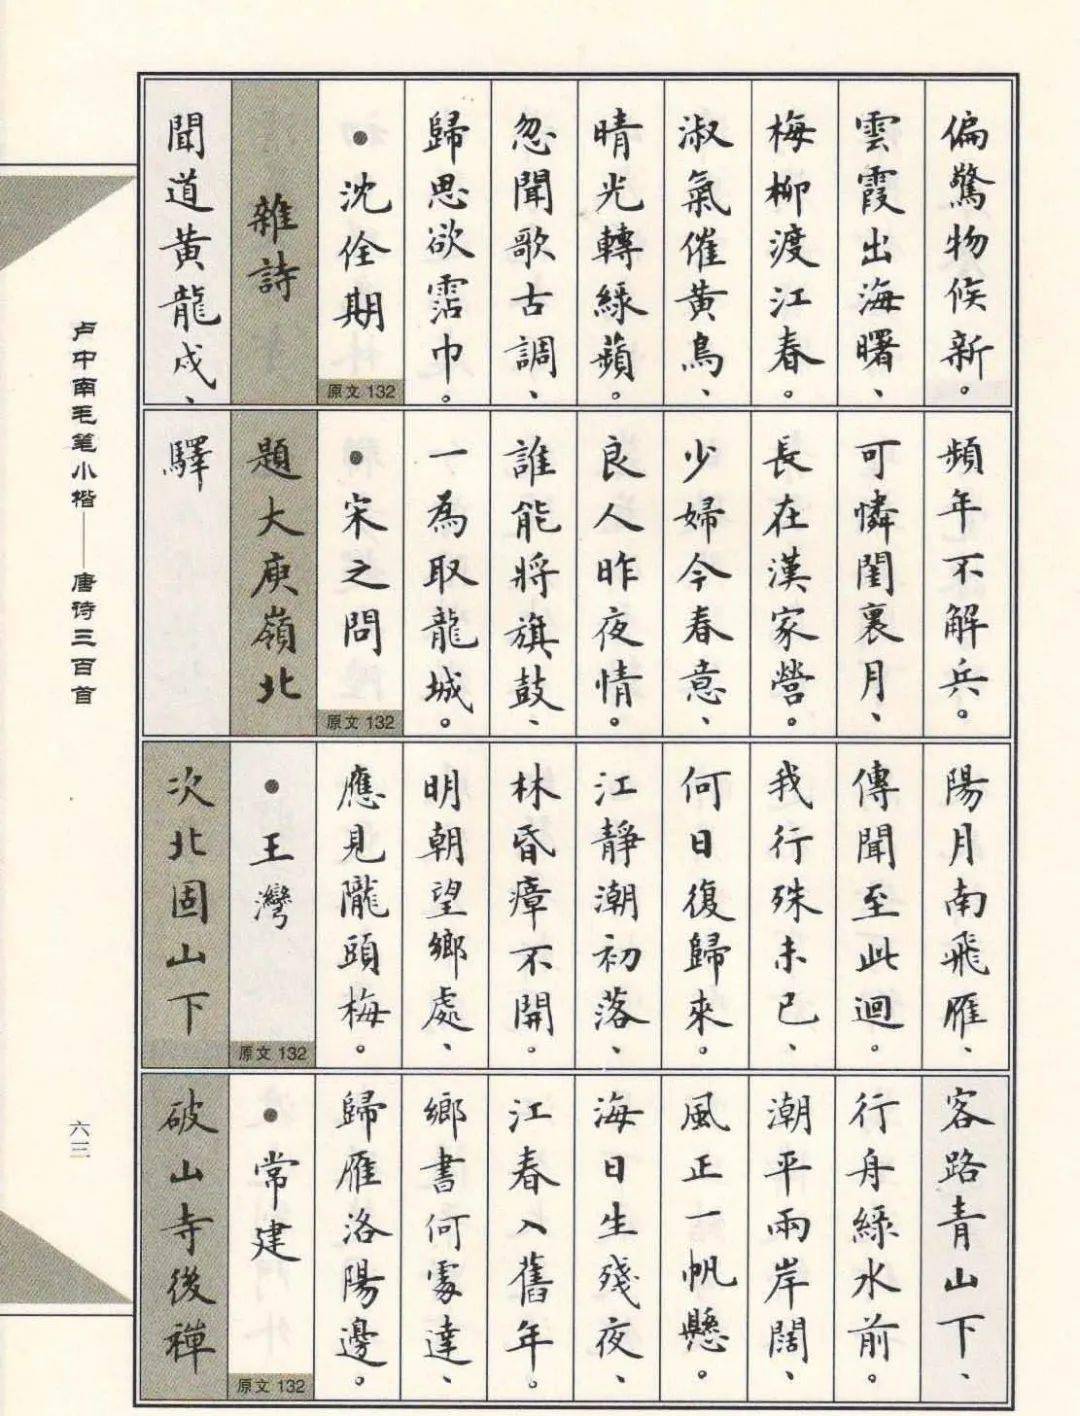 偏驚物候新。
雲霞出海曙、
梅柳渡江春。
淑氣催黃鳥、
晴光轉綠蘋。
忽聞歌古調、
歸思欲霑巾。
●沈佺期
原文132
雜詩
聞道黃龍戍、
頻年不解兵。
可憐閨裏月、
長在漢家營。
少婦今春意、
良人昨夜情。
誰能將旗鼓、
一為取龍城。
●宋之問
原文132
題大庾嶺北
驛
陽月南飛雁、
傳聞至此迴。
我行殊未已、
何日復歸來。
江靜潮初落、
林昏瘴不開。
明朝望鄉處、
應見隴頭梅。
●王灣
原文132
次北固山下
客路青山下、
行舟綠水前。
潮平兩岸闊、
風正一帆懸。
海日生殘夜、
江春入舊年。
鄉書何處達、
歸雁洛陽邊。
●常建
原文132
破山寺後禪
卢中南毛笔小楷——唐诗三百首
六三